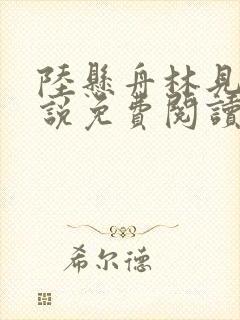 陸懸舟林見
說免費閱讀
希尔德